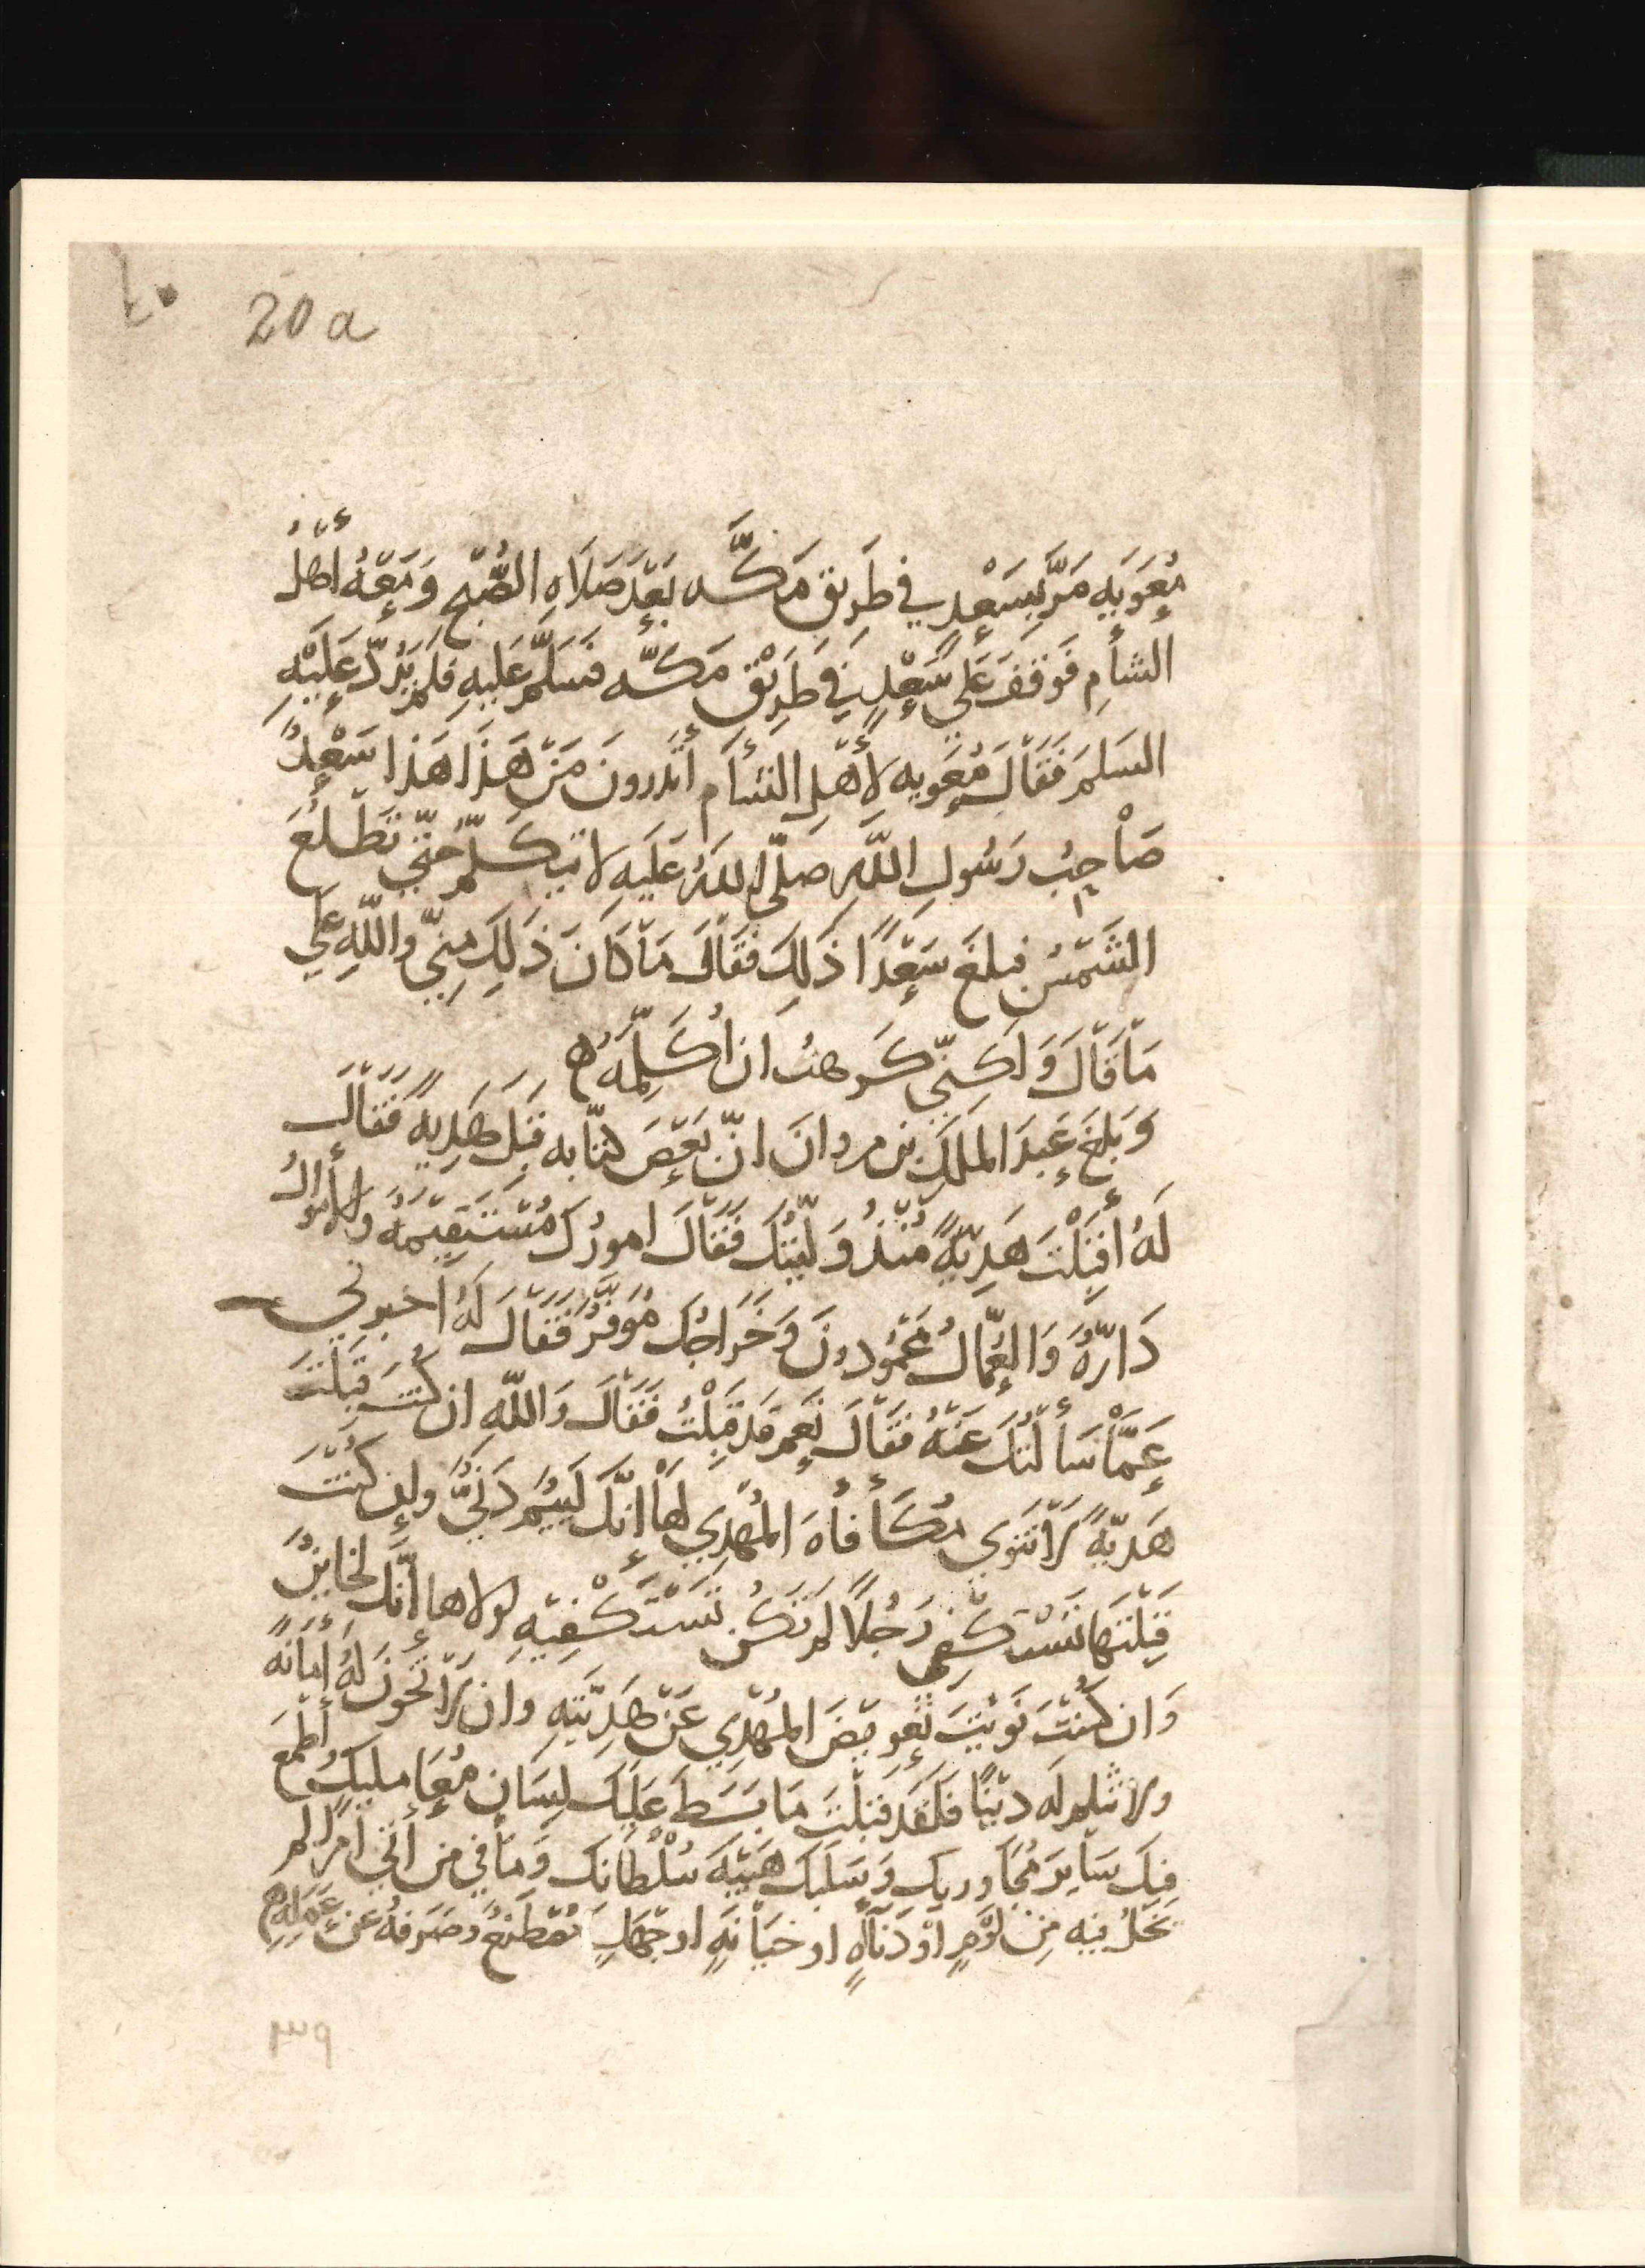 ٤٠ 20 a
مُعَوِيَه مَرَّ بِسَعْدٍ فِي طَرِيقِ مَكَّه بَعْدَ صَلَاهِ الصُّبْحِ وَمَعَهُ أَهْلُ
الشأمِ فَوَقَفَ عَلَى سَعْدٍ فِي طَرِيْقِ مَكَّه فَسَلَّمَ عَلَيهِ فَلَمْ يَرُدَّ عَلَيْهِ
السَلمَ فَقَالَ مُعَوِيه لأَهْلِ الشأَم أتَدرونَ مَنْ هَذَا هَذا سَعْدٌ
صَاحِبُ رَسُولِ اللَّهِ صلَّى اللهُ عَلَيهِ لا يَتَكَلَّمُ حَتَّى تَطْلُعَ
الشَمْسُ فبلغَ سَعْدًا ذَلِكَ فَقَالَ مَا كَانَ ذَلِكَ مِنِّي واللَّهِ عَلَى
مَا قَالَ وَلَكِنّي كَرهتُ ان أُكَلِّمَهُ ه
وَبَلغَ عَبدَ الملكِ بن مروانَ انّ بَعْضَ كتّابه قَبِلَ هَدِيهً فَقَالَ
لَهُ أَقَبِلْتَ هَدِيّهً مُنْذُ وَلّيتُكَ فَقَالَ امورُكَ مُسْتَقِيْمَهٌ والأَموالُ
دَارّهٌ وَالعُمّالُ مَحْمُودونَ وَخَراجُكَ مُوَفَّرٌ فَقَالَ لَهُ اخبرني
عَمَّا سَأَلْتُكَ عَنْهُ فَقَالَ نَعَم قَد قَبِلْتُ فَقَالَ وَاللّه ان كُنتَ قَبِلْتَ
هَديّهً لَا تَنوي مُكَأفأهَ المُهْدِي لَهَا إنَّكَ لَئِيمٌ دَنِيٌّ وإن كُنْتَ
قَبِلْتَهَا تَسْتَكْفِي رَجُلًا لم تَكُن تَسْتَكْفِيَهِ لولاها إنَّكَ لخَاينٌ
وَان كُنْتَ نَوَيْتَ تَعويضَ المُهْدِي عَنْ هَدِيَّتِهِ وان لا تَخُونَ لَهُ أَمَانَهً
ولا تثلم لَه دينًا فَلَقَد قَبِلْتَ مَا بَسَطَ عَلَيكَ لِسَانَ مُعَامِليكَ وَأطْمَعَ
فِيكَ سَايِرَ مُجَاوريكَ وَسَلَبَكَ هَيْبَهَ سُلْطَانكَ وَمَا في من أَتَى أَمرًا لم
يَخْلُ فِيه مِن لؤْمٍ اوْ دَنَاآهٍ او خِيَانَهٍ او جَهْلٍ مُصْطَنَعٌ وَصَرَفَهُ عَن عَمَلِهِ ه
٣٩